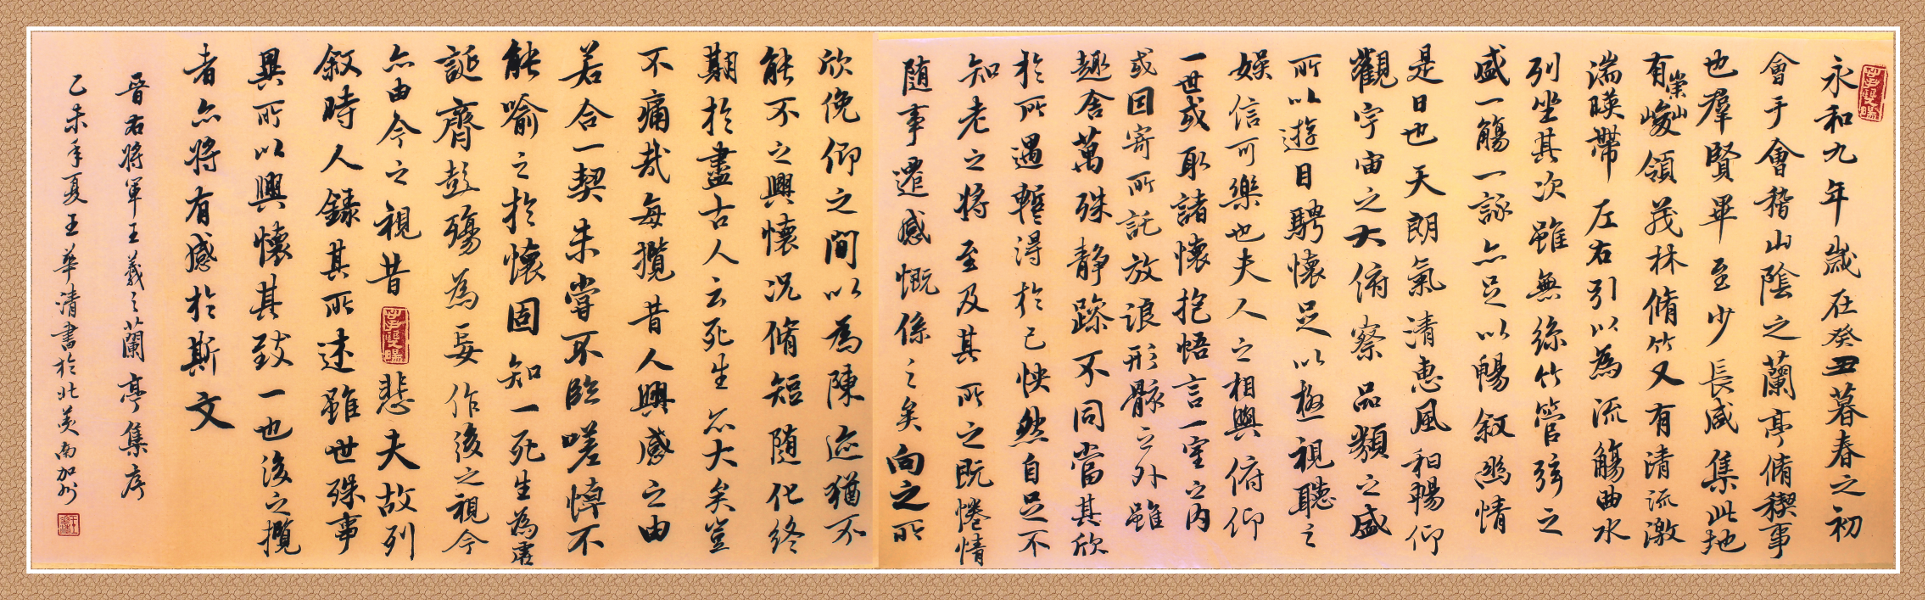 永和九年歲在癸丑暮春之初
會于會稽山陰之蘭亭脩稧事
也羣賢畢至少長咸集此地
有崇山峻領茂林脩竹又有清流激
湍暎帶左右引以為流觴曲水
列坐其次雖無絲竹管弦之
盛一觴一詠亦足以暢敘幽情
是日也天朗氣清惠風和暢仰
觀宇宙之大俯察品類之盛
所以遊目騁懷足以極視聽之
娛信可樂也夫人之相與俯仰
一世或取諸懷抱悟言一室之內
或因寄所託放浪形骸之外雖
趣舍萬殊靜躁不同當其欣
於所遇暫得於己快然自足不
知老之將至及其所之既惓情
隨事遷感慨係之矣向之所
欣俛仰之間以為陳迹猶不
能不之興懷況脩短隨化終
期於盡古人云死生亦大矣豈
不痛哉每攬昔人興感之由
若合一契未嘗不臨嗟悼不
能喻之於懷固知一死生為虛
誕齊彭殤為妄作後之視今
亦由今之視昔悲夫故列
敘時人錄其所述雖世殊事
異所以興懷其致一也後之攬
者亦將有感於斯文
晉右將軍王羲之蘭亭集序
乙未年夏王華清書於北美南加州